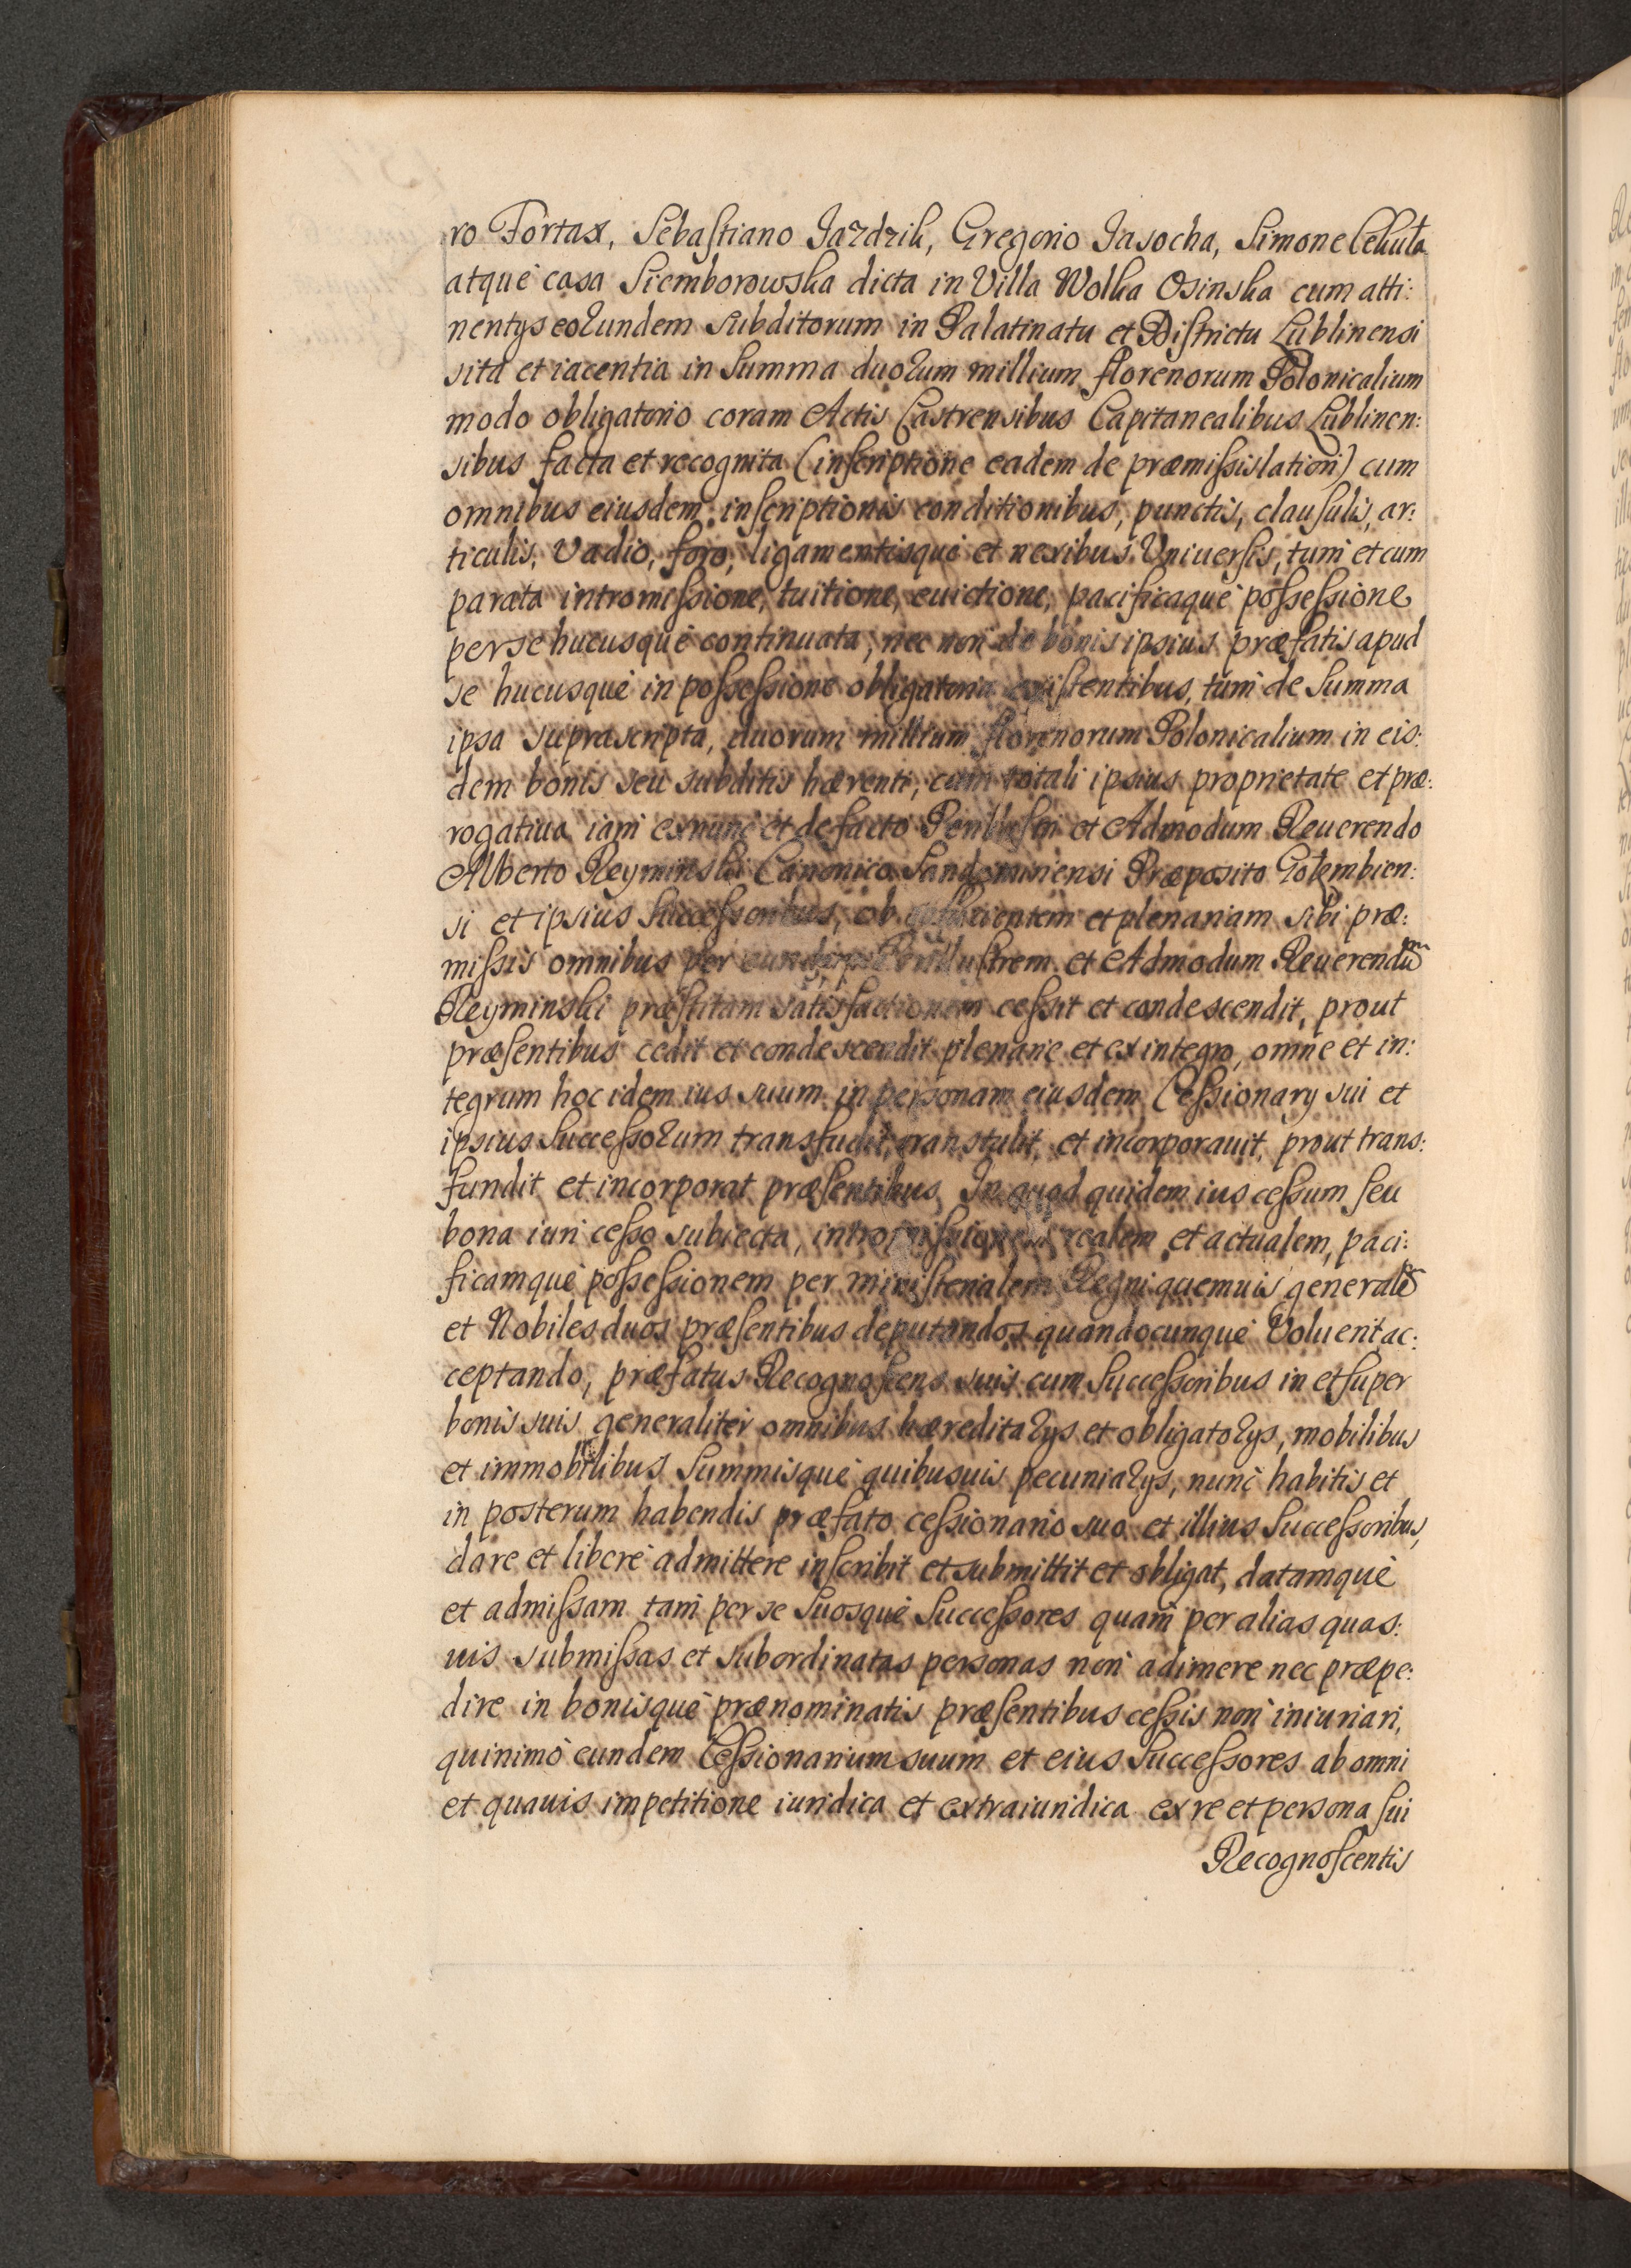 ro Fortax, Sebastiano Jazdzik, Gregorio Jasocha, Simone Cekuta
atque casa Siemborowska dicta in Villa Wolka Osinska cum atti:
nentys eorundem subditorum in Palatinatu et Districtu Lublinensi
sita et iacentia in Summa duorum millium florenorum Polonicalium
modo obligatorio coram Actis Castrensibus Capitanealibus Lublinen:
sibus facta et recognita (inscriptione eadem de præmissis latiori) cum
omnibus eiusdem inscriptionis conditionibus, punctis, clausulis, ar:
ticulis, Vadio, foro, ligamentisque et nexibus Universis, tum et cum
parata intromissione, tuitione, euictione, pacificaque possessione
per se hucusque continuata, nec non de bonis ipsius præfatis apud
se hucusque in possessione obligatoria existentibus, tum de Summa
ipsa suprascripta, duorum millium florenorum Polonicalium in eis:
dem bonis seu subditis hærenti, cum totali ipsius proprietate et præ:
rogatiua iam ex nunc et de facto Perillustri et Admodum Reuerendo
Alberto Reyminski Canonico Sandomiriensi Præposito Golembien:
si et ipsius Successoribus, ob et plenariam sibi præ:
missis omnibus per eundem Perillustrem et Admodum Reuerendum
Reyminski præstitam satisfactionem cessit et condescendit, prout
præsentibus cedit et condescendit plenarie et ex integro, omne et in:
tegrum hoc idem ius suum in personam eiusdem Cessionary sui et
ipsius Successorum transfudit, transtulit, et incorporauit, prout trans:
fundit et incorporat præsentibus, In quod quidem ius cessum seu
bona iuri cesso subiecta, intromissionem realem et actualem, paci:
ficamque possessionem per ministerialem Regni quemuis generalem
et Nobiles duos præsentibus deputandos quandocunque Voluerit ac:
ceptando, præfatus Recognoscens suis cum Successoribus in et super
bonis suis generaliter omnibus hæreditarys et obligatorys, mobilibus
et immobilibus Summisque quibusuis pecuniarys, nunc habitis et
in posterum habendis præfato cessionario suo et illius Successoribus,
dare et libere admittere inscribit et submittit et obligat, datamque
et admissam tam per se Suosque Successores quam per alias quas:
uis submissas et subordinatas personas non adimere nec præpe:
dire in bonisque prænominatis præsentibus cessis non iniuriari,
quinimo eundem Cessionarium suum et eius Successores ab omni
et quauis impetitione iuridica et extraiuridica ex re et persona sui
Recognoscentis